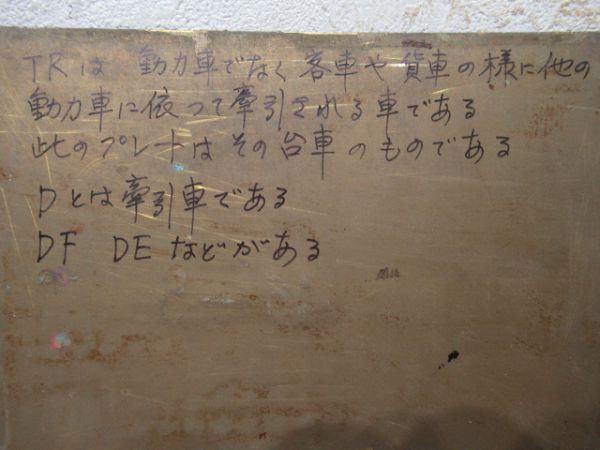 TRは 動力車でなく 客車や貨車の様に他の
動力車に依って牽引される車である
此のプレートはその台車のものである
Dとは牽引車である
DF DEなどがある